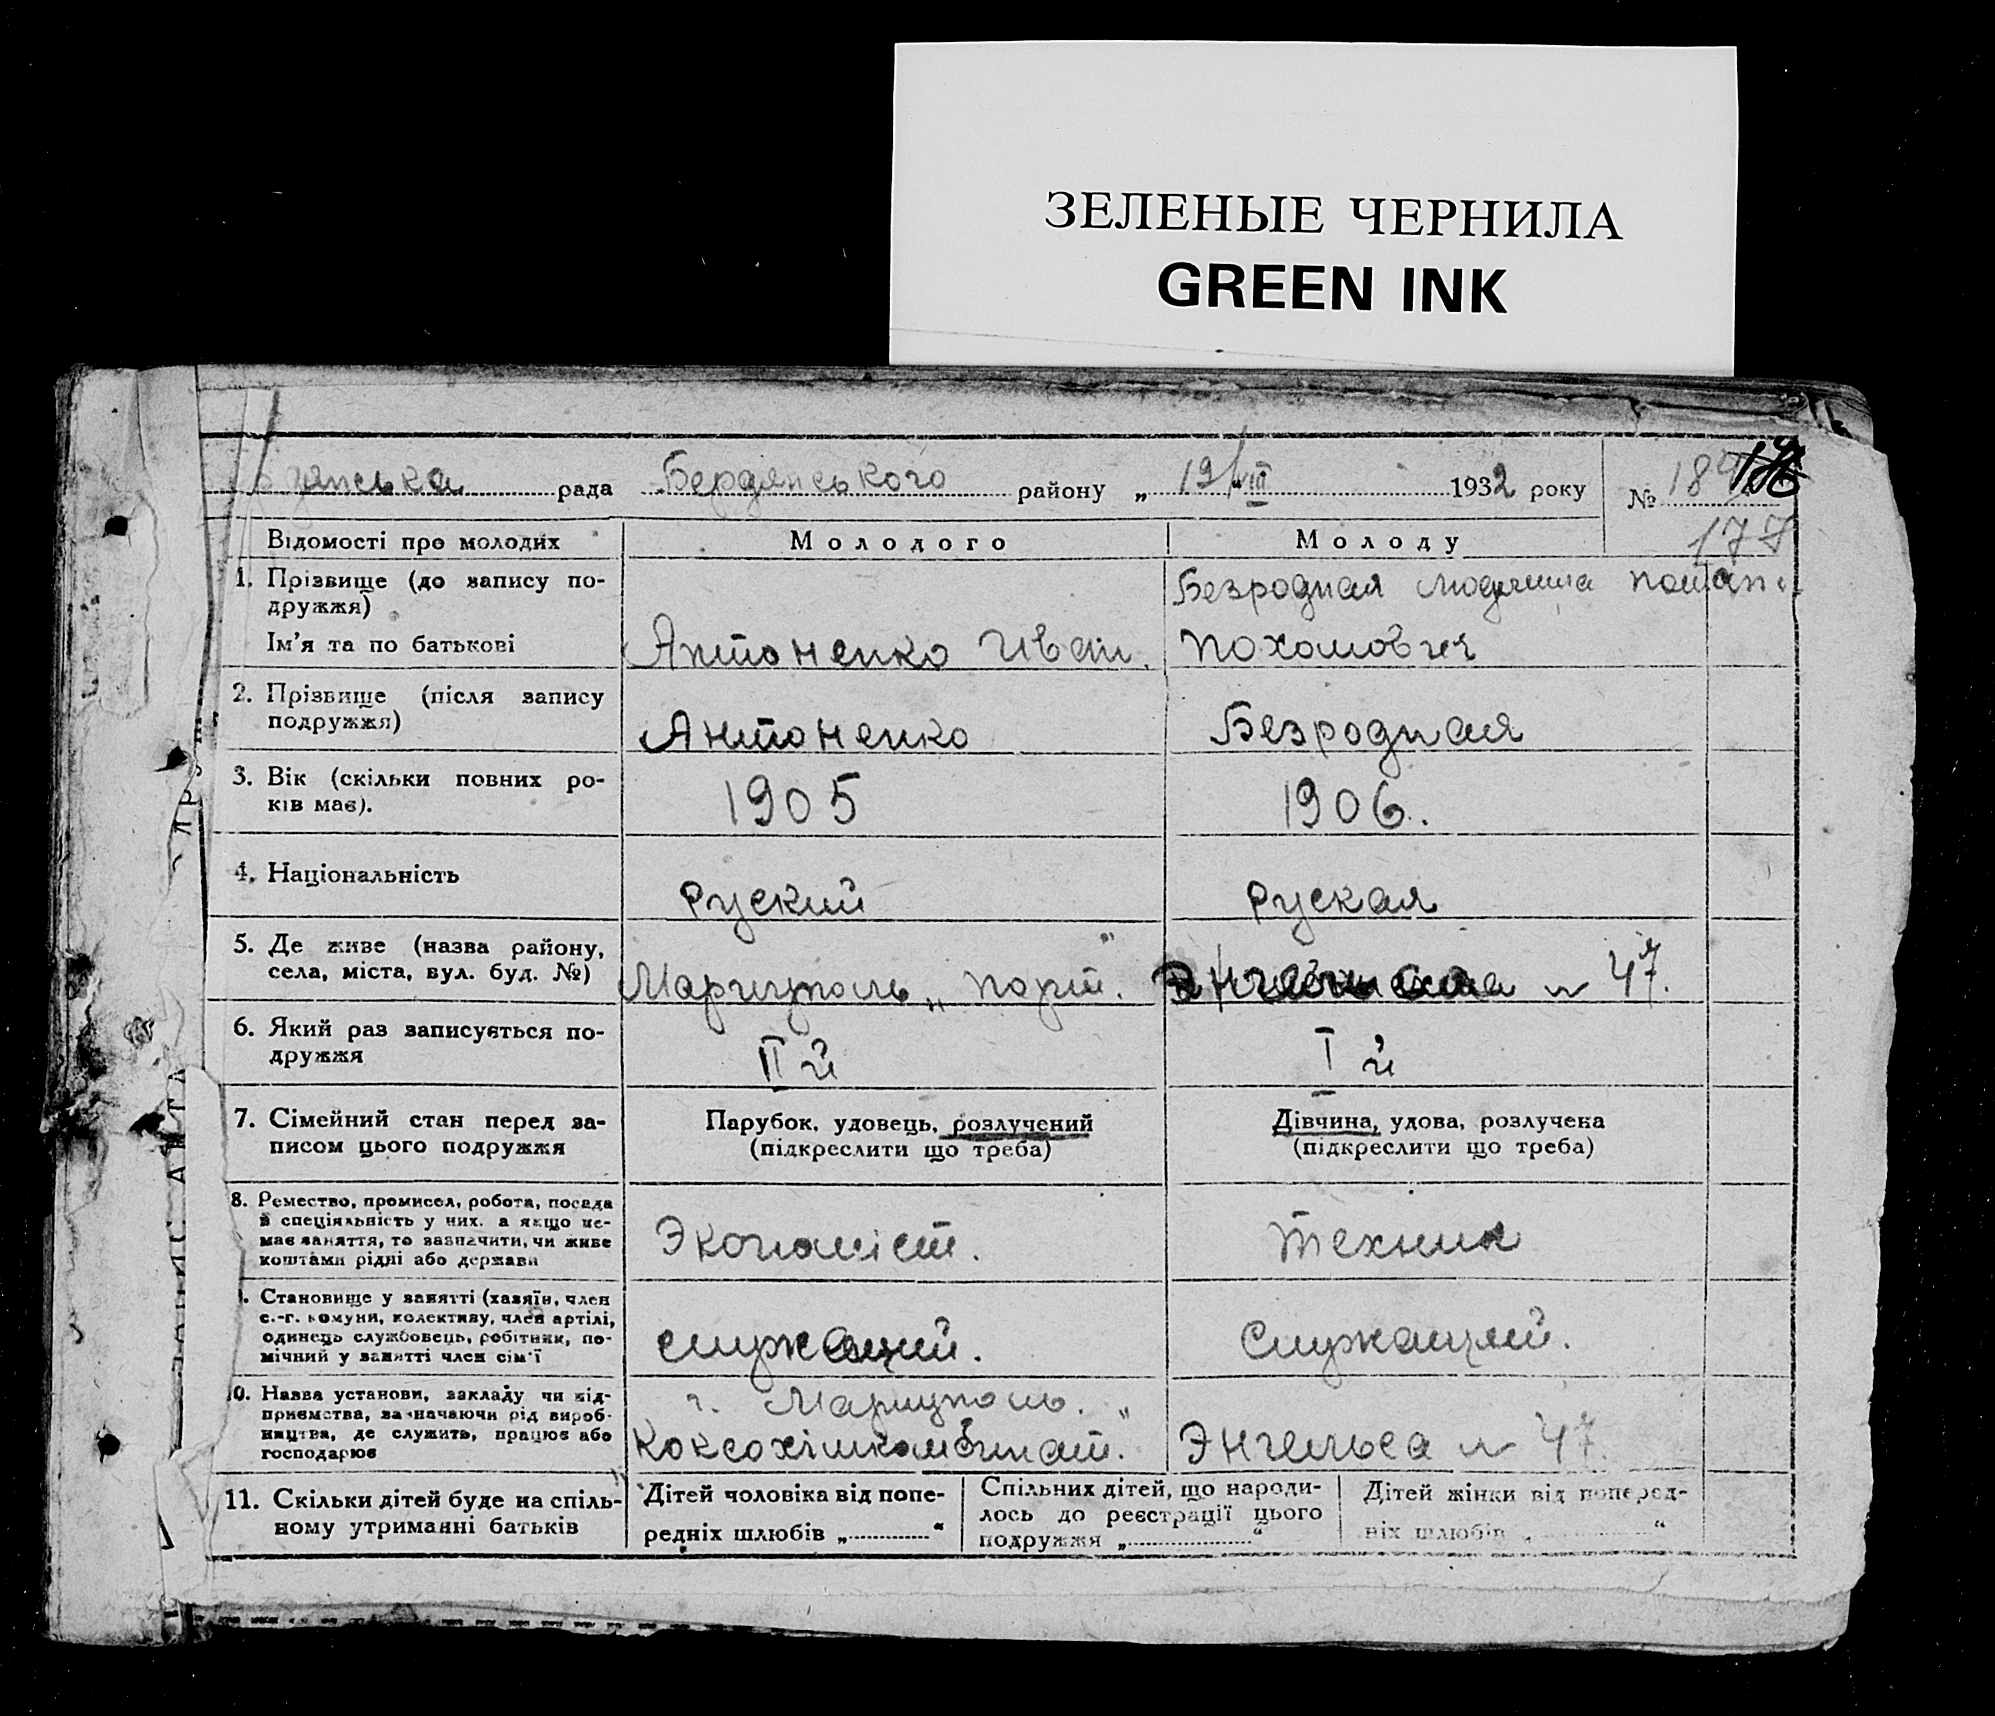 ЗЕЛЕНЫЕ ЧЕРНИЛА
GREEN INK
рада Бердянського району „ 19/VIII 1932 року
№ 184
177
Відомості про молодих
Молодого
Молоду
1. Прізвище (до запису по-
дружжя)
Ім'я та по батькові
Антоненко Иван.
Безродная Людмила
Похомовня
2. Прізвище (після запису
подружжя)
Антоненко
Безродная
3. Вік (скільки повних ро-
ків має).
1905
1906.
4. Національність
Руский
Руская
5. Де живе (назва району,
села, міста, вул. буд. №)
Мариуполь „порт".
№ 47.
6. Який раз записується по-
дружжя
II й
I й
7. Сімейний стан перед за-
писом цього подружжя
Парубок, удовець, розлучений
(підкреслити що треба)
Дівчина, удова, розлучена
(підкреслити що треба)
8. Ремество, промисел, робота, посада
в спеціяльність у них. а якщо не-
має заняття, то зазначити, чи живе
коштами рідні або держави
Экономіст.
Техник
Становище у занятті (хазяїн, член
с.-г. комуни, колективу, член артілі,
одинець службовець, робітник, по-
мічний у занятті член сім'ї
служащий.
Служащий.
0. Назва установи, закладу чи під-
приємства, зазначаючи рід вироб-
ництва, де служить, працює або
господарює
г. Мариуполь.
Коксохімкомбинат."
Энгельса № 47.
11. Скільки дітей буде на спіль-
ному утриманні батьків
Дітей чоловіка від попе-
редніх шлюбів „ “
Спільних дітей, що народи-
лось до реєстрації цього
подружжя „ “
Дітей жінки від поперед-
ніх шлюбів „ “